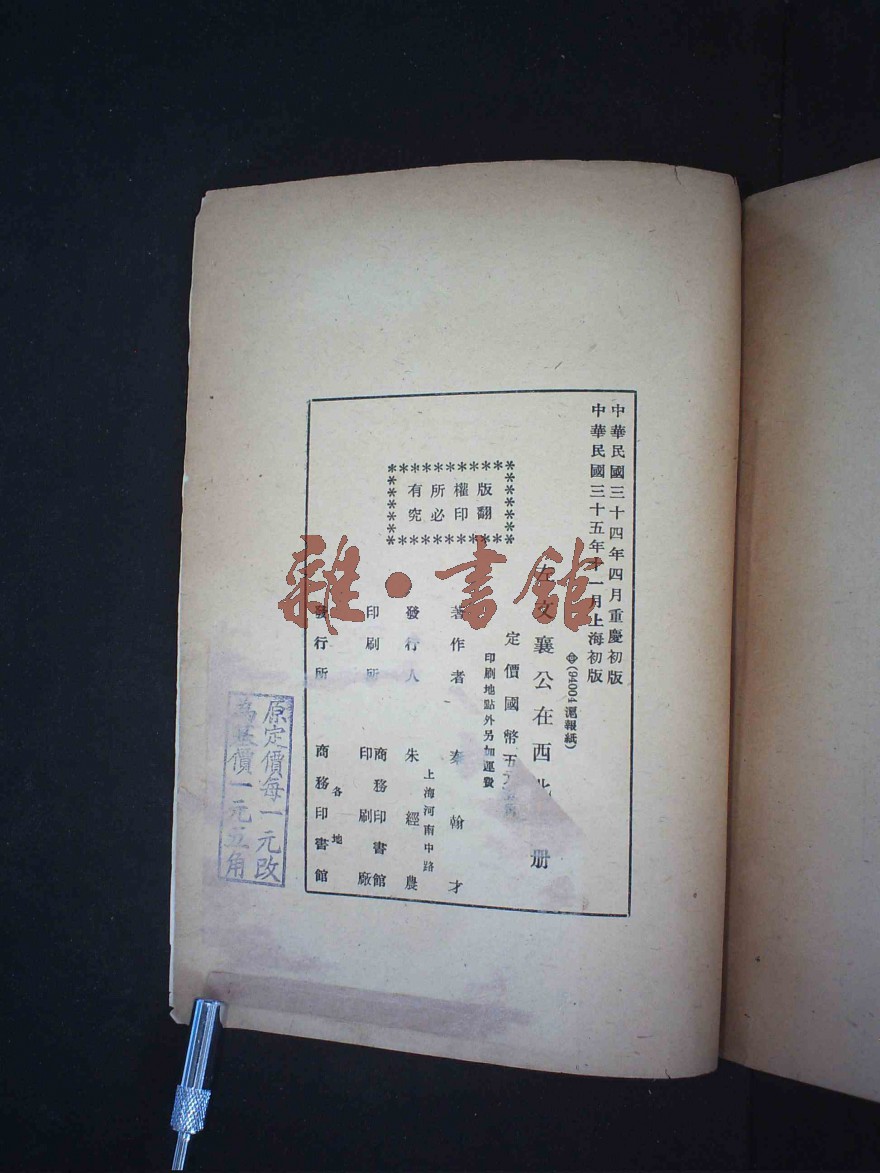 中華民國三十四年四月重慶初版
中華民國三十五年十一月上海初版
(94004 滬報紙)
左文襄公在西北 冊
定價國幣五元
印刷地點外另加運費
版權所有
翻印必究
著作者 秦翰才
發行人 朱經農
上海河南中路
印刷所 商務印書館印刷廠
發行所 各地商務印書館
原定價每一元改
為基價一元五角
雜·書館